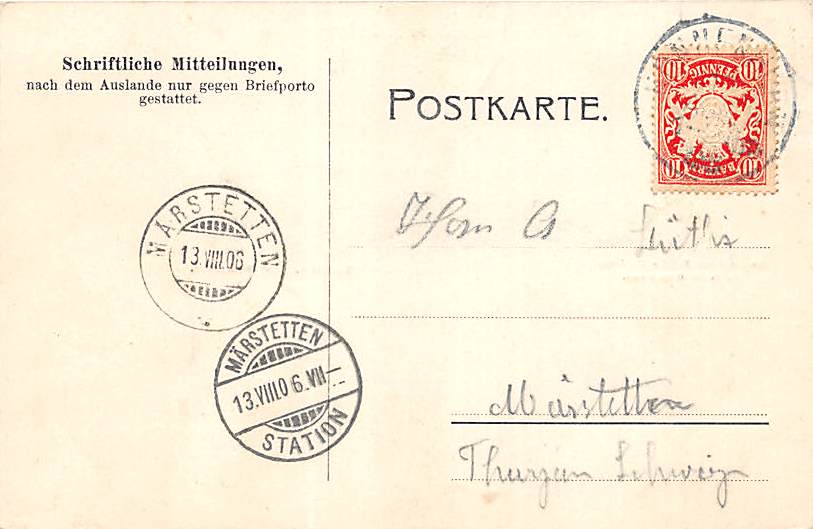 Schriftliche Mitteilungen,
nach dem Auslande nur gegen Briefporto
gestattet.
POSTKARTE.
10 PFENNIG 10
BAYERN
10 10
MÄRSTETTEN
13.VIII.06
MÄRSTETTEN
13.VIII.06.VII—
STATION
Herrn A Lüthi
Märstetten
Thurgau Schweiz